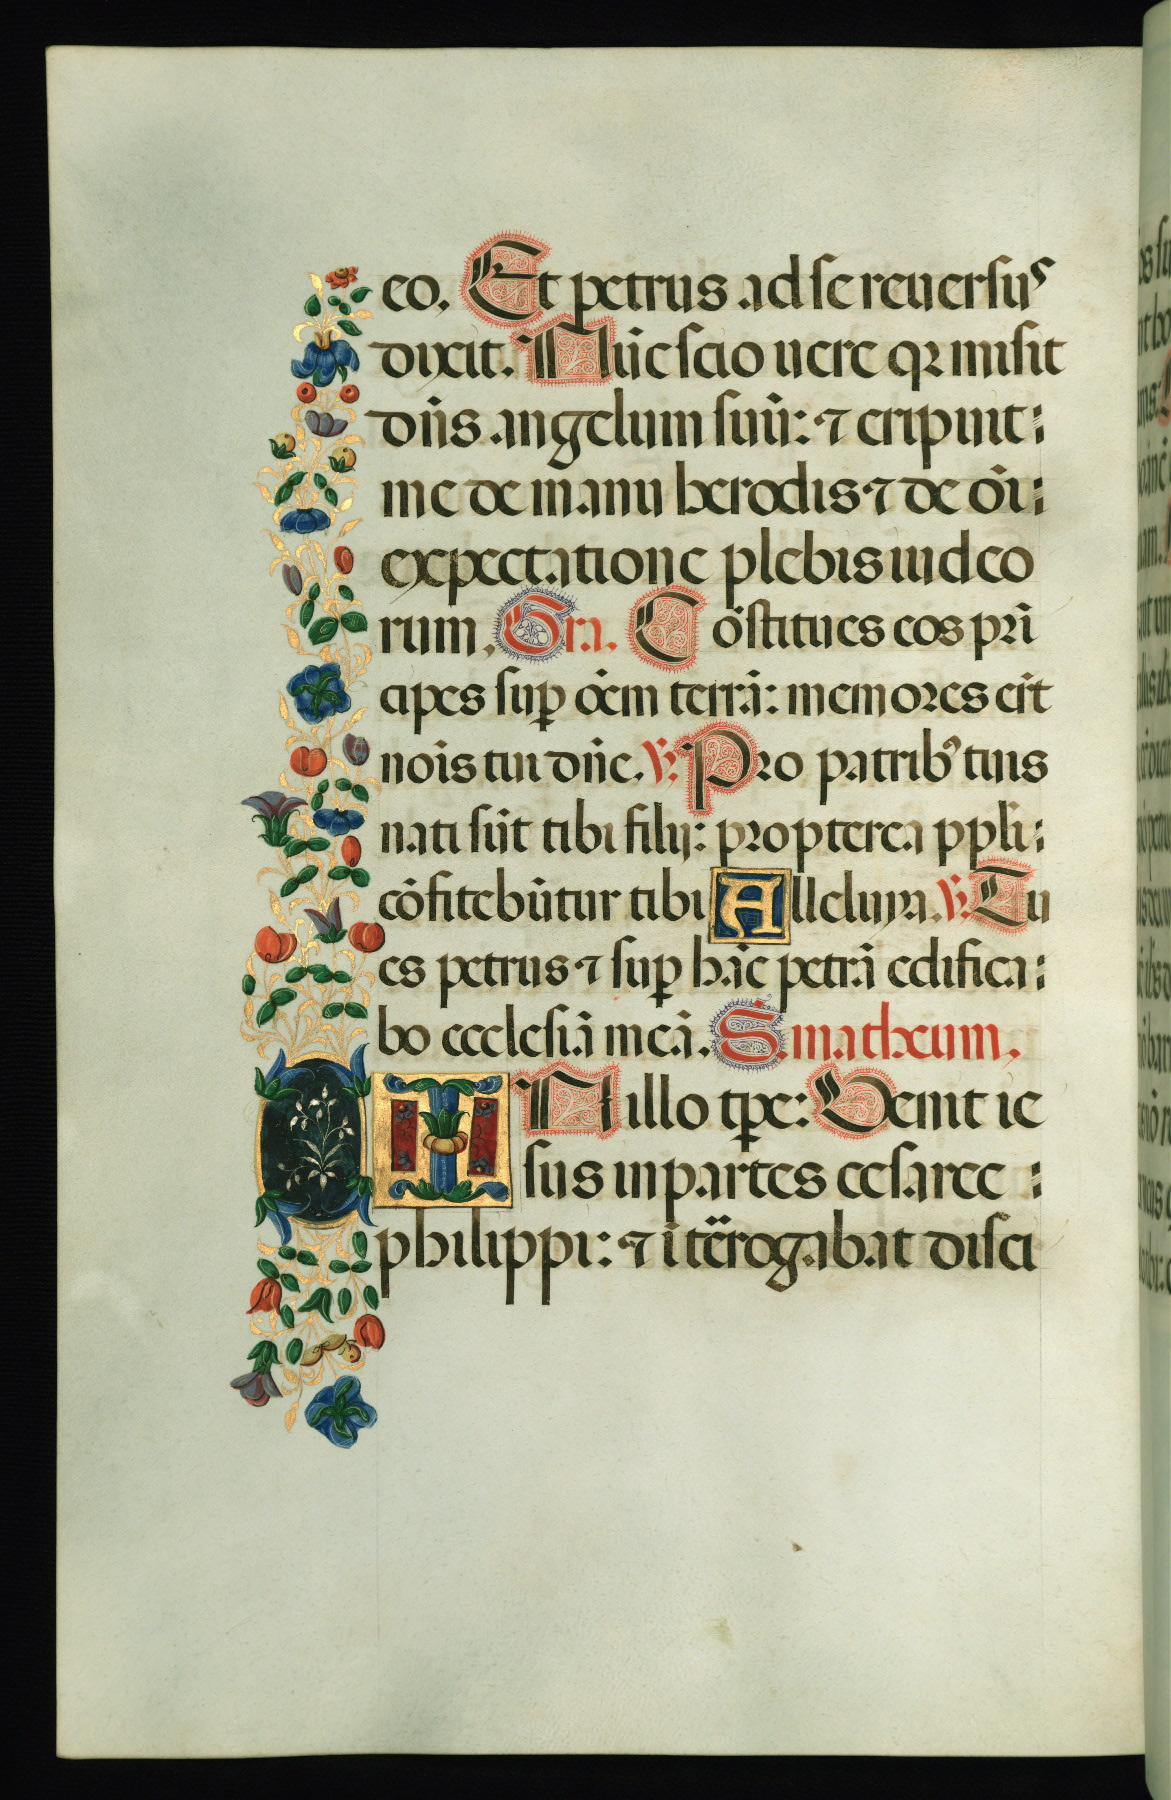 eo. Et petrus ad se reuersus
dixit. Nūc scio uere qꝛ misit
dn̄s angelum suū: ⁊ eripuit:
me de manu herodis ⁊ de oī:
expectatione plebis iudeo
rum. Gra. Cōstitues eos pꝛī
cipes suꝑ oēm terrā: memoꝛes eīt
nōis tui dn̄e. ℣. Pꝛo patribꝰ tuis
nati sūt tibi filij: pꝛopterea ppl̄i:
cōfitebūtur tibi Alleluya. ℣. Tu
es petrus ⁊ suꝑ hāc petrā edifica:
bo ecclesiā meā. S. matheum.
IN illo tꝑe: Uenit ie
sus in partes cesaree :
philippi: ⁊ īterrogabat disci